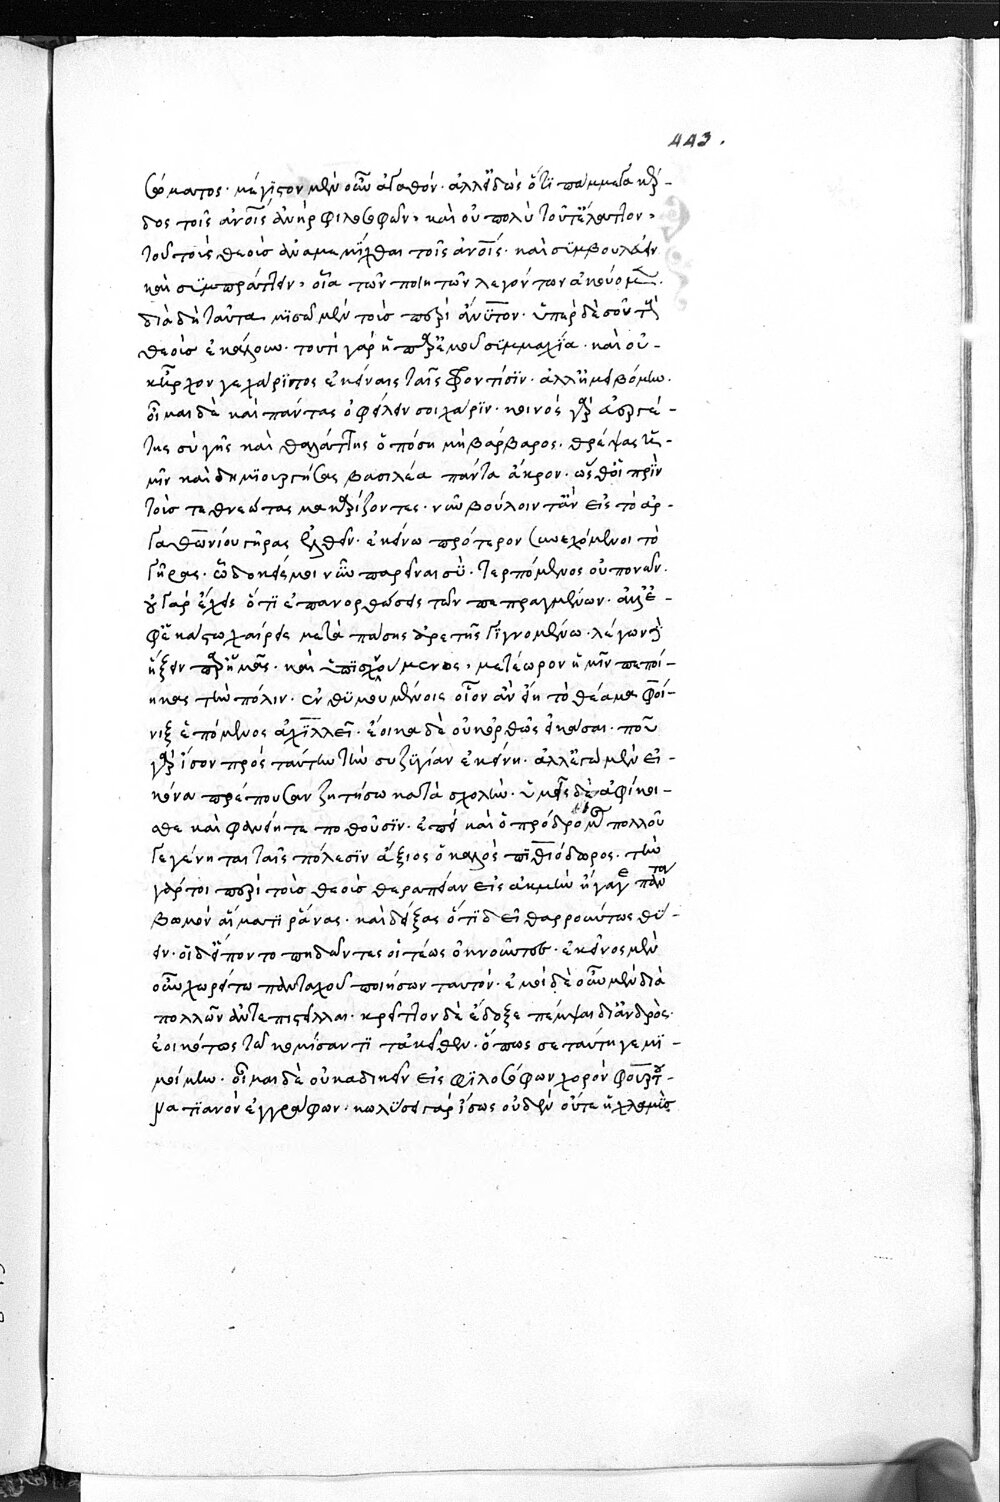 443.
σώματος· μέγιστον μὲν οὖν ἀγαθόν· ἀλλ' εἰδὼς ὅτι παμμέγα κέρ-
δος τοῖς ἀνοις ἀνὴρ φιλοσοφῶν, καὶ οὐ πολὺ τοῦτ' ἔλαττον,
τοῦ τοὺς θεοὺς ἀναμεμίχθαι τοῖς ἀνοις· καὶ συμβουλεύειν
καὶ συμπράττειν, οἷα τῶν ποιητῶν λεγόντων ἀκούομεν.
διὰ δὴ ταῦτα μισῶ μὲν τοὺς περὶ ἄνυτον· ὑπὲρ δὲ σοῦ τοὺς
θεοὺς ἐκάλουν· τουτὶ γὰρ ἡ παρ' ἐμοῦ συμμαχία· καὶ οὐ-
κ ἦρχόν γε χάριτος ἐκείναις ταῖς φροντίσιν· ἀλλ' ἠμειβόμην.
οἶμαι δὲ καὶ πάντας ὀφείλειν σοι χάριν· κοινὸς γὰρ εὐεργέ-
της σὺ γῆς καὶ θαλάττης ὁπόση μὴ βάρβαρος· θρέψας ἡ-
μῖν καὶ δημιουργήσας βασιλέα πάντα ἄκρον· ὥσθ' οἱ πρὶν
τοὺς τεθνεῶτας μακαρίζοντες· νῦν βούλοιντ' ἂν εἰς τὸ ἀρ-
γαθωνίου γῆρας ἐλθεῖν· ἐκείνω πρότερον συνευχόμενοι τὸ
γῆρας· ὧ δοκεῖς μοι νῦν παρεῖναι σὺ· τερπόμενος οὐ πονῶν.
οὐ γὰρ εἶχες ὅτι ἐπανορθώσεις τῶν πεπραγμένων· ἀλλ' ἐ-
φ' ἑκάστω χαίρεις μετὰ πάσης ἀρετῆς γιγνομένω· λέγων δὲ
ἥξειν παρ' ἡμᾶς· καὶ ὑπισχνούμενος, μετέωρον ἡμῖν πεποί-
ηκας τὴν πόλιν· ἐνθυμουμένοις οἷον ἂν εἴη τὸ θέαμα φοί-
νιξ ἑπόμενος ἀχιλλεῖ· ἔοικα δὲ οὐκ ὀρθῶς εἰκάσαι· ποῦ
γὰρ ἴσον πρὸς ταύτην τὴν συζυγίαν ἐκείνη· ἀλλ' ἔγωγε μὲν εἰ-
κόνα πρέπουσαν ζητήσω κατὰ σχολήν· ὑμεῖς δὲ ἀφίκοι-
σθε καὶ φανείητε ποθοῦσιν· ἐπεὶ καὶ ὁ πρόδρομος πολλοῦ
γεγένηται ταῖς πόλεσιν ἄξιος ὁ καλὸς πυθιόδωρος· τὴν
γάρ τοι περὶ τοὺς θεοὺς θεραπείαν εἰς ἀκμὴν ἤγαγε πάντα
βωμὸν αἵματι ῥάνας· καὶ δείξας ὅτι δεῖ θαρρούντως θύ-
ειν· οἱ δ' εἵποντο πηδῶντες οἱ τέως ὀκνοῦντες· ἐκεῖνος μὲν
οὖν χωρείτω πανταχοῦ ποιήσων ταυτόν· ἐμοὶ δὲ οὖν μὲν διὰ
πολλῶν ἀντεπιστεῖλαι· κρεῖττον δὲ ἔδοξε πέμψαι δι' ἀνδρὸς
ἐοικότως τῶ κομίσαντι τἀκεῖθεν· ὅπως σε ταύτη γε μι-
μοίμην· οἶμαι δὲ οὐκ ἀδικεῖν εἰς φιλοσόφων χορὸν φουρτου-
νατιανὸν ἐγγράφων· κωλύσει γὰρ ἴσως οὐδὲν οὔτε ἡ χλαμὺς